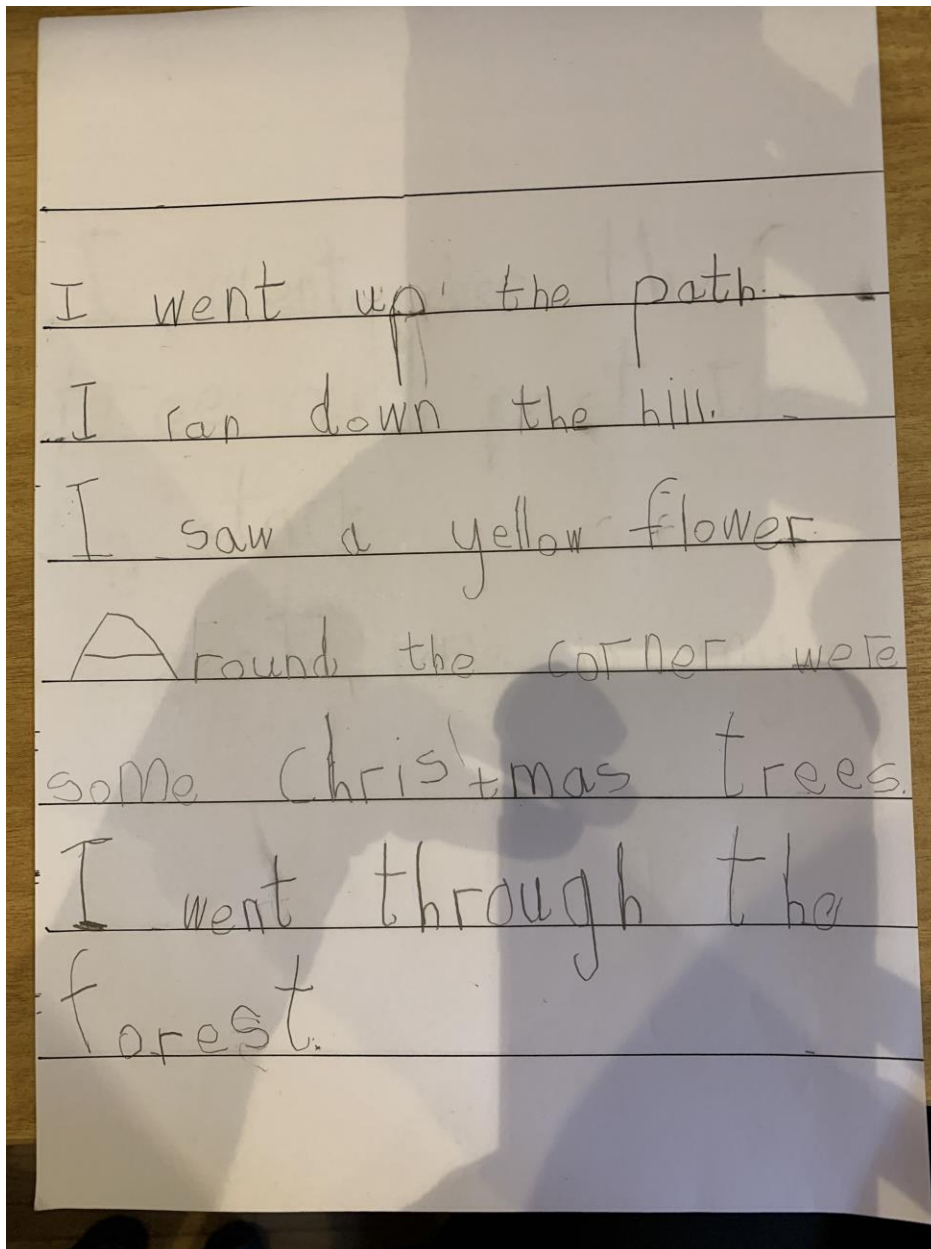 I went up the path.
I ran down the hill.
I saw a yellow flower.
Around the corner were
some Christmas trees.
I went through the
forest.